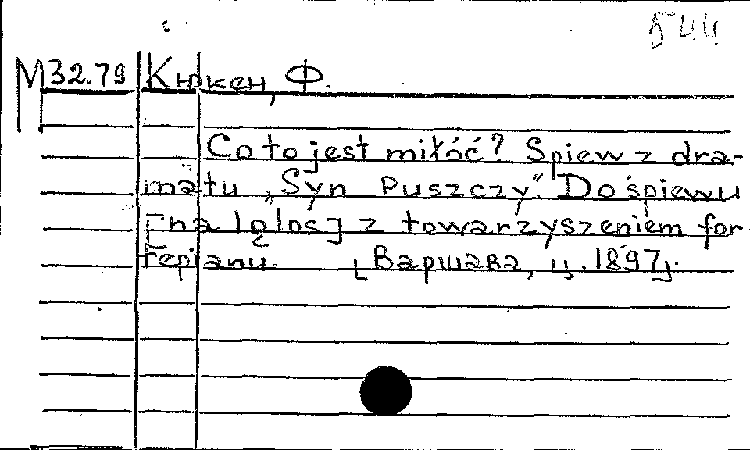 544
M32.79 Кюкен, Ф.
Co to jest miłóć? Spiew z dra-
matu „Syn Puszczy". Do śpiewu
[na 1 głos] z towarzyszeniem for-
tepianu. [Варшава, ц. 1897].